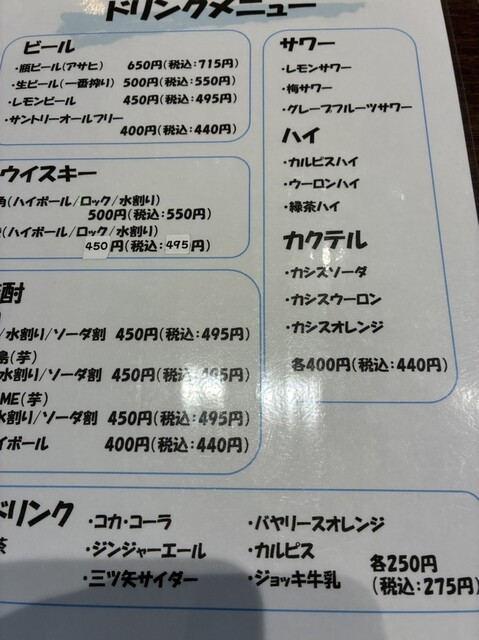 ドリンクメニュー
ビール
・瓶ビール(アサヒ) 650円(税込:715円)
・生ビール(一番搾り) 500円(税込:550円)
・レモンビール 450円(税込:495円)
・サントリーオールフリー
400円(税込:440円)
ウイスキー
角(ハイボール/ロック/水割り)
500円(税込:550円)
(ハイボール/ロック/水割り)
450円(税込:495円)
酎
/水割り/ソーダ割 450円(税込:495円)
島(芋)
水割り/ソーダ割 450円(税込:495円)
ME(芋)
水割り/ソーダ割 450円(税込:495円)
イボール 400円(税込:440円)
サワー
・レモンサワー
・梅サワー
・グレープフルーツサワー
ハイ
・カルピスハイ
・ウーロンハイ
・緑茶ハイ
カクテル
・カシスソーダ
・カシスウーロン
・カシスオレンジ
各400円(税込:440円)
ドリンク
茶
・コカ・コーラ
・ジンジャーエール
・三ツ矢サイダー
・バヤリースオレンジ
・カルピス
・ジョッキ牛乳
各250円
(税込:275円)